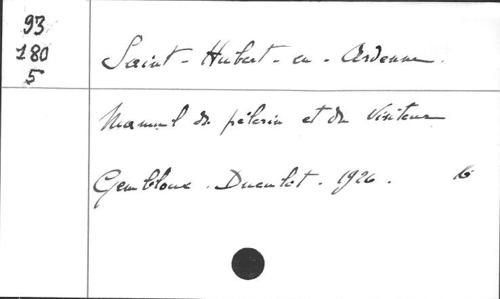 93
180
5
Saint-Hubert-en-Ardenne.
Manuel du pélerin et du Visiteur
Gembloux. Duculot. 1926. 16